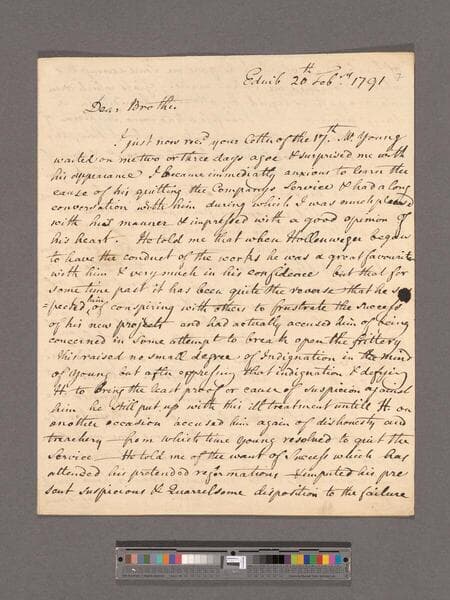 Edinb 20th Febry 1791
Dear Brother
I just now recd your Letter of the 17th. Mr. Young
waited on me two or three days agoe & surprised me with
his appearance I became immediatly anxious to learn the
cause of his quitting the Companys Service & had a long
conversation with him during which I was much pleased
with his manner & impressed with a good opinion of
his heart. He told me that when Hollenweger began
to have the conduct of the works he was a great favourite
with him & very much in his confidence but that for
some time past it has been quite the reverse that he sus
=pected him of conspiring with others to frustrate the success
of his new project and had actually accused him of being
concerned in some attempt to break open the frittery
this raised no small degree of Indignation in the mind
of Young but after expressing that indignation & defying
H. to bring the least proof or cause of suspicion against
him he still put up with this ill treatment untill H. on
another occasion accused him again of dishonesty and
treachery from which time Young resolved to quit the
Service — He told me of the want of Success which has
attended his pretended reformations & imputed his pre
sent Suspicious & Quarrelsome disposition to the failure